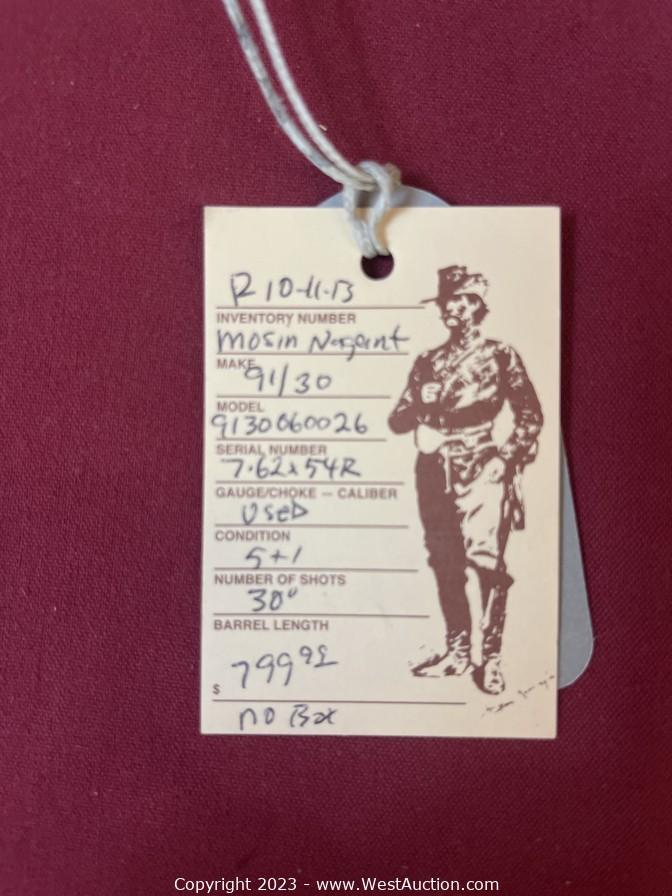 R 10-11-13
INVENTORY NUMBER
Mosin Nagant
MAKE
91/30
MODEL
9130060026
SERIAL NUMBER
7.62x54R
GAUGE/CHOKE — CALIBER
Used
CONDITION
5+1
NUMBER OF SHOTS
30"
BARREL LENGTH
$ 799 95
no Box
Copyright 2023 - www.WestAuction.com